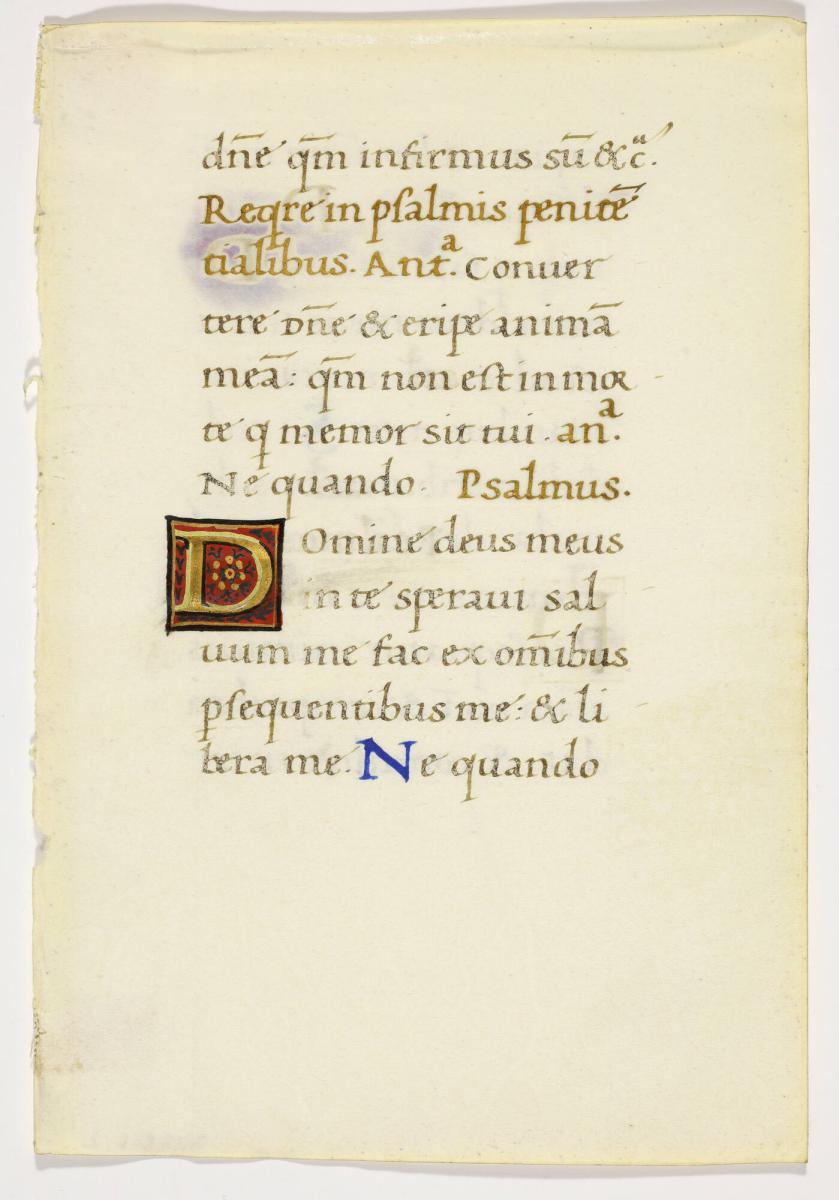 dn̄e q̄m infirmus sū &cᵃ.
Reqre in psalmis penitē
tialibus. Antᵃ. Conuer
tere Dn̄e & eripe animā
meā: q̄m non est in mor
te q memor sit tui. anᵃ.
Ne quando. Psalmus.
DOmine deus meus
in te speraui sal
uum me fac ex om̄ibus
ꝑsequentibus me: & li
bera me. Ne quando